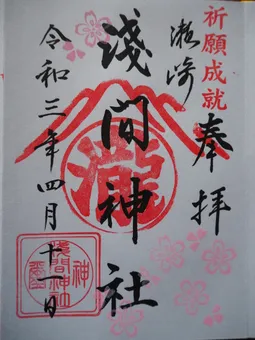 祈願成就
奉拝
瀬崎
淺間神社
令和三年四月十一日
淺間神社